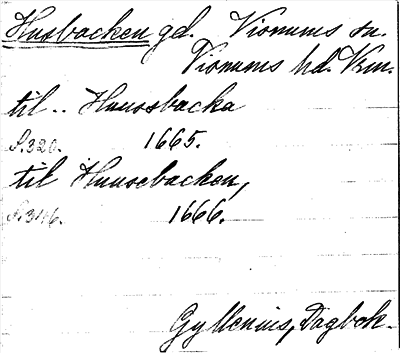 Husbacken gd. Visnums sn.
Visnums hd. Vrm.
til .. Huusbacka
S. 320. 1665.
til Huusebacken,
S. 346. 1666.
Gyllenius, Dagbok.